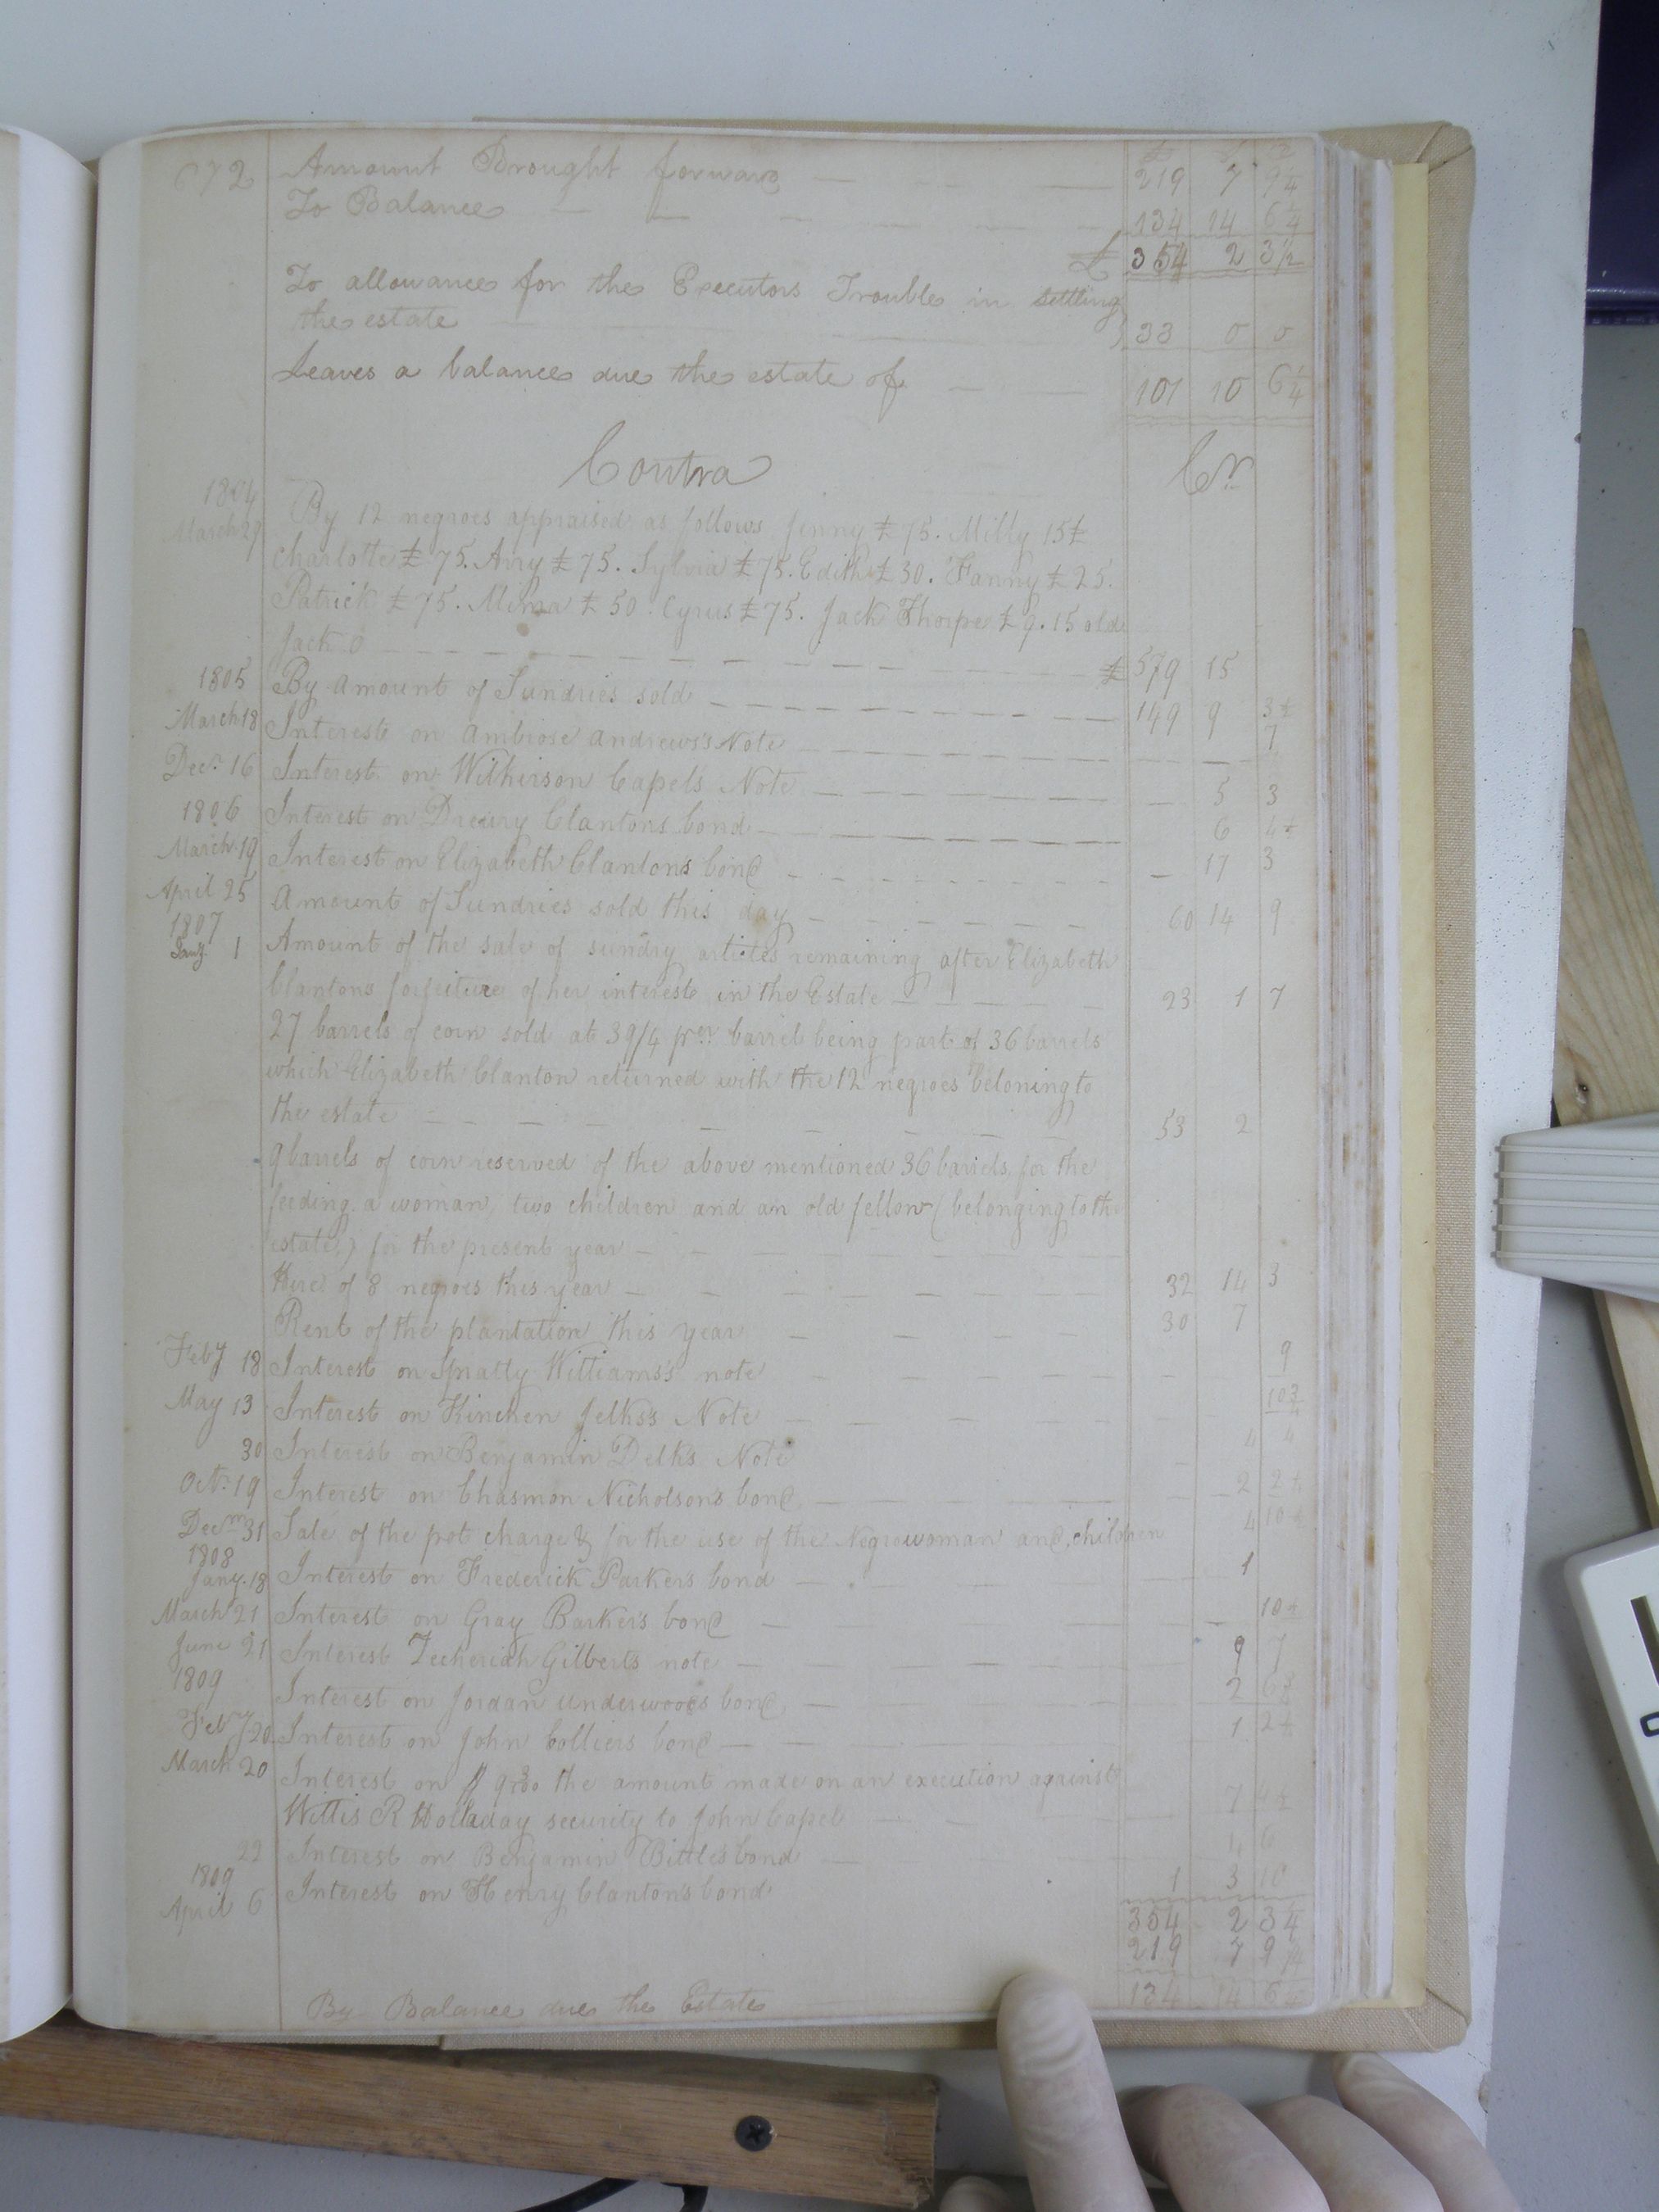 672 Amount Brought forward 219 7 9 1/4
To Balance 134 14 6 1/4
£ 354 2 3 1/2
To allowance for the Executors Trouble in settling
the estate 33 0 0
Leaves a balance due the estate of 101 10 6 1/4
Contra Cr
1804
March 29 By 12 negroes appraised as follows Jenny £75. Milly 15£
Charlotte £75. Airy £75. Sylvia £75. Edith £30. Fanny £25.
Patrick £75. Mima £50. Cyrus £75. Jack Thorpe £9.15 old
Jack 0 £579 15
1805 By amount of Sundries sold 149 9
March 18 Interest on Ambrose Andrews's Note 7
Decr 16 Interest on Wilkinson Capels Note 5 3
1806 Interest on Drewry Clantons bond 6
March 19 Interest on Elizabeth Clantons bond 17 3
April 25 Amount of Sundries sold this day 60 14 9
1807
Jany 1 Amount of the sale of sundry articles remaining after Elizabeth
Clantons forfeiture of her interest in the Estate 23 1 7
27 barrels of corn sold at 39/4 pr barrel being part of 36 barrels
which Elizabeth Clanton returned with the 12 negroes beloning to
the estate 53 2
9 barrels of corn reserved of the above mentioned 36 barrels for the
feeding a woman, two children and an old fellow (belonging to the
estate) for the present year
Hire of 8 negroes this year 32 14 3
Rent of the plantation this year 30 7
Feby 18 Interest on Williams's note 9
May 13 Interest on Kinchen Jelks's Note 10 3/4
30 Interest on Benjamin Delks Note 4 4
Octr 19 Interest on Chasmon Nicholsons bond 2
Decm 31 Sale of the pot charged for the use of the Negrowoman and children 4
1808
Jany. 18 Interest on Frederick Parkers bond 1
March 21 Interest on Gray Barkers bond
June 21 Interest Zecheriah Gilberts note 9 7
1809 Interest on Jordan Underwoods bond 2
Feby 20 Interest on John Colliers bond 1
March 20 Interest on the amount made on an execution against
Willis R Holladay security to John Capel 7
22 Interest on Benjamin Bittles bond 1 6
1809
April 6 Interest on Henry Clanton's bond 1 3 10
354 2
219 7 9 1/4
By Balance due the Estate 134 14